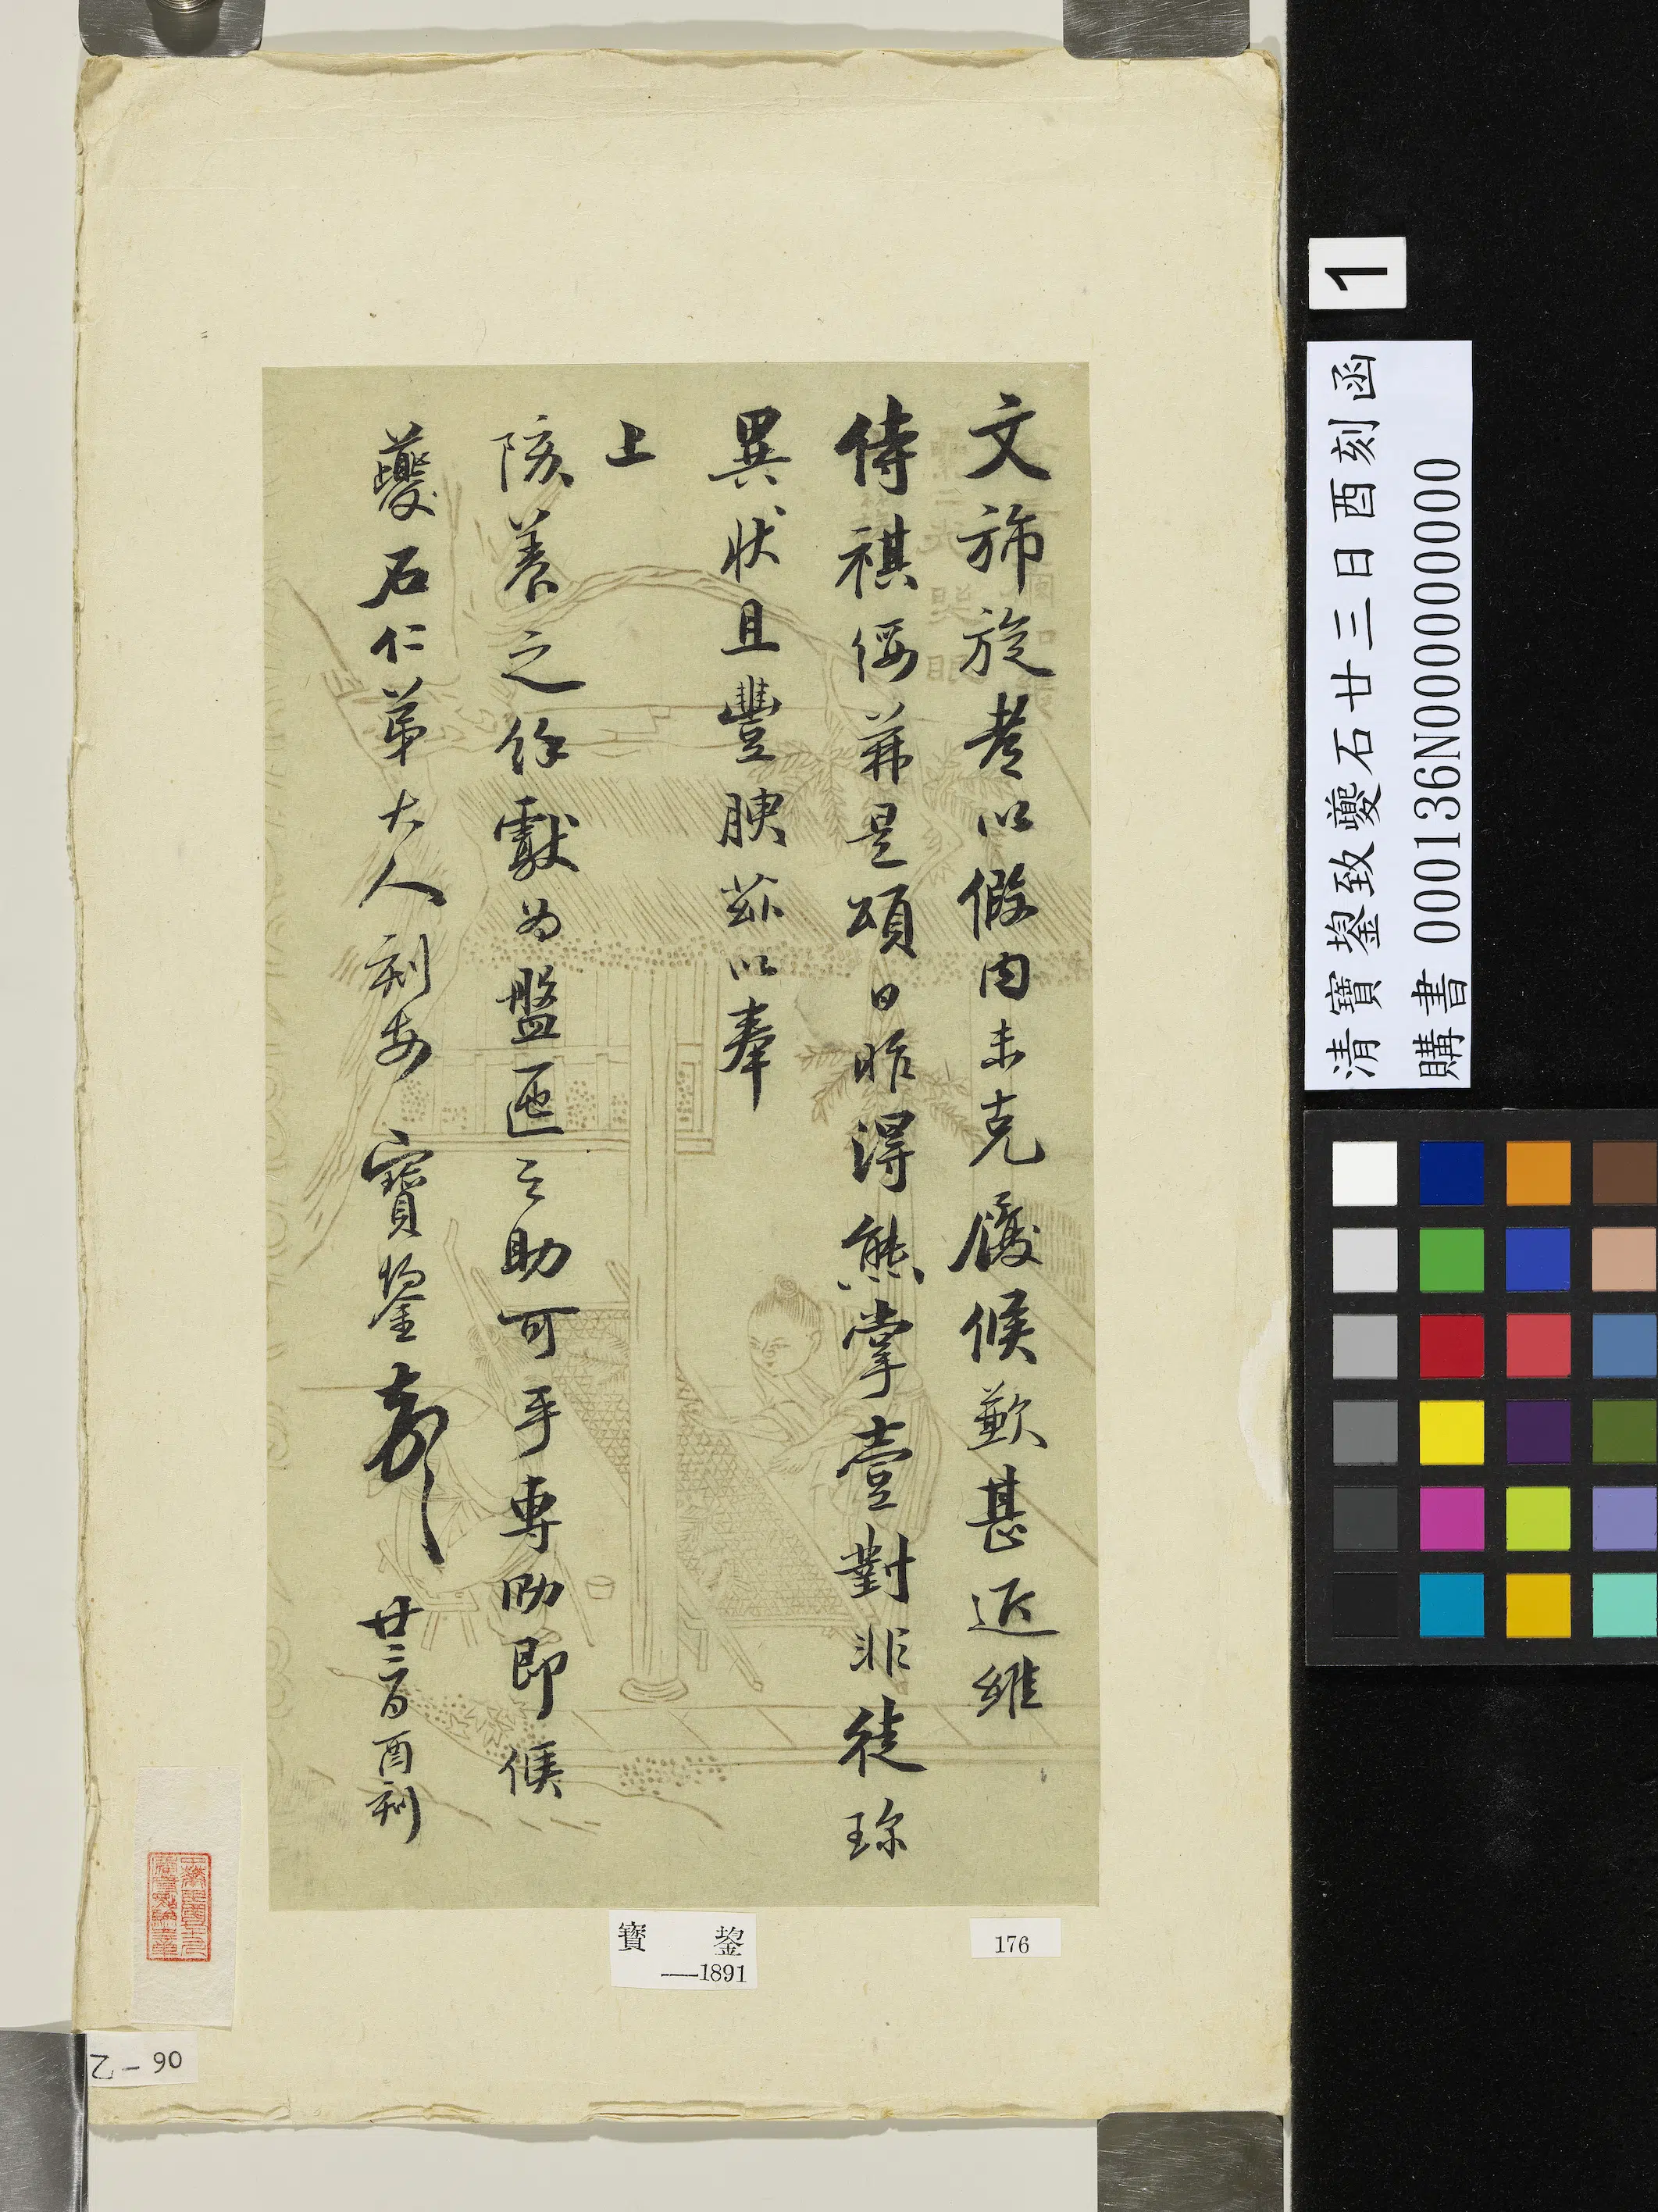 文旆旋耆以假内未克履候歉甚近維
侍祺綏茀是頌日昨得熊掌壹對非徒珍
異狀且豐腴茲以奉
上
陔養之餘獻為盤匜之助可乎專泐即候
夔石仁弟大人刻安 寶鋆頓 廿三日酉刻
寶鋆
—1891
176
乙-90
1
清寶鋆致夔石廿三日酉刻函
購書 000136N000000000